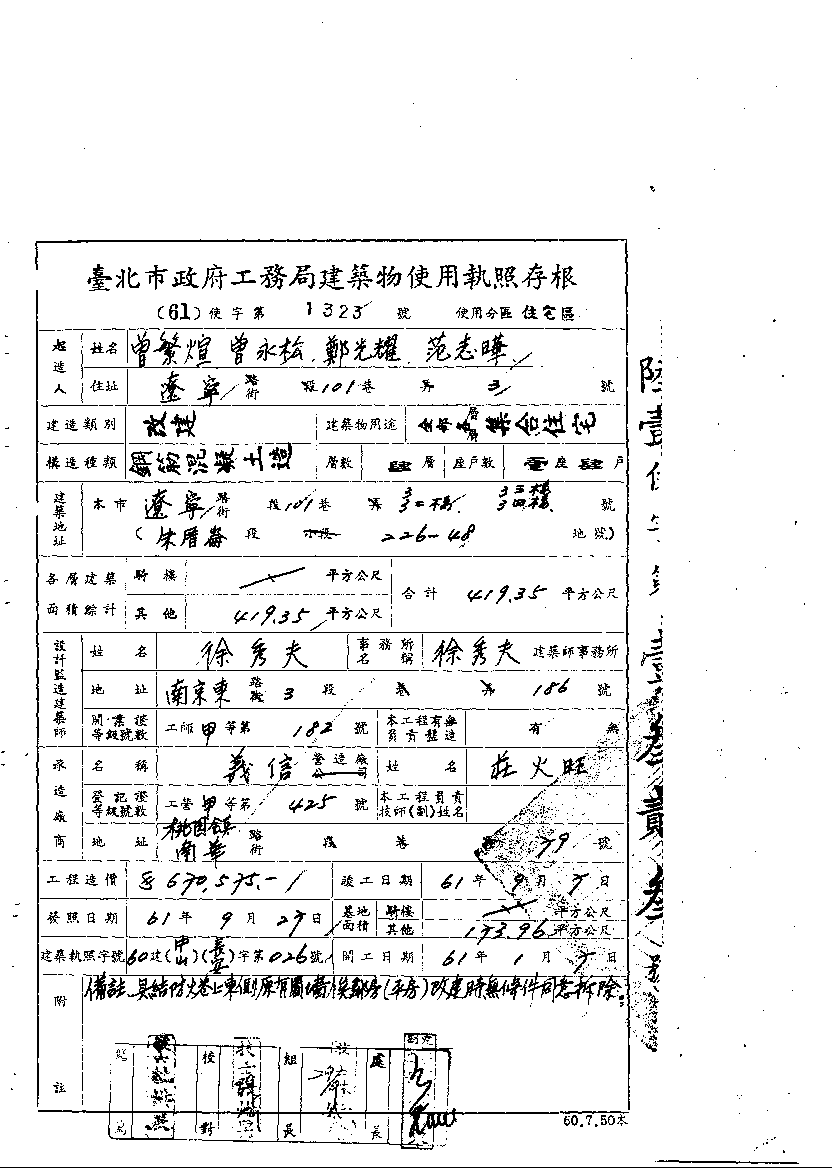 臺北市政府工務局建築物使用執照存根
(61)使字第 1323 號 使用分區 住宅區
起造人 姓名 曾繁煊 曾永松 鄭光耀 范志曄
住址 遼寧 路街 段 101 巷 弄 3 號
建造類別 改建 建築物用途 集合住宅
構造種類 鋼筋混凝土造 層數 肆 層 座戶數 壹 座 肆 戶
建築地址 本市 遼寧 路街 段 101 巷 弄 3 3二樓 3三樓 3四樓 號
(朱厝崙 段 小段 226-48 地號)
各層建築面積綜計 騎樓 平方公尺 合計 419.35 平方公尺
其他 419.35 平方公尺
設計監造建築師 姓名 徐秀夫 事務所名稱 徐秀夫 建築師事務所
地址 南京東 路街 3 段 巷 弄 186 號
開業證等級號數 工師 甲 等第 182 號 本工程有無負責監造 有 無
承造廠商 名稱 義信 營造廠公司 姓名 莊火旺
登記證等級號數 工營 甲 等第 425 號 本工程負責技師(副)姓名
地址 桃園鎮南華 路街 段 巷 79 號
工程造價 670,575.- 竣工日期 61 年 9 月 7 日
發照日期 61 年 9 月 27 日 基地面積 騎樓 平方公尺
其他 173.96 平方公尺
建築執照字號 60建(中山)(長安)字第 026 號 開工日期 61 年 1 月 7 日
附註 備註 具結防火巷上東側原有圍牆 (平房)改建時無條件同意拆除。
校對 組長 處長
60.7.50本